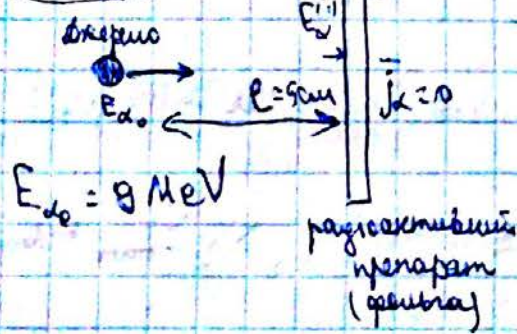 Джерело
E_α₀
E_α⁽¹⁾
ℓ = 5 cm
j_α = 0
E_α₀ = 9 MeV
радіоактивний
препарат
(фольга)